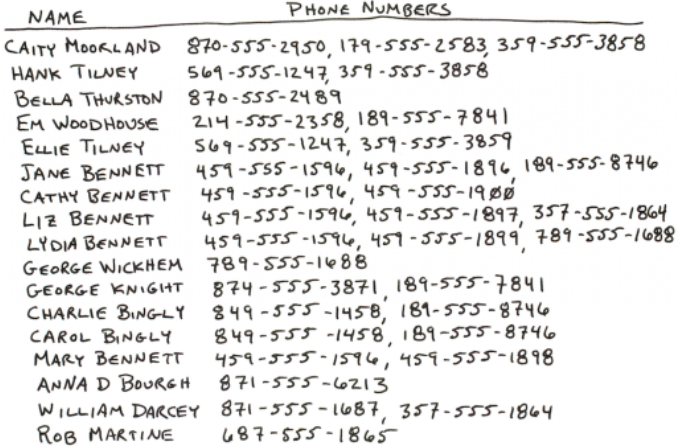 NAME PHONE NUMBERS
CAITY MOORLAND 870-555-2950, 179-555-2583, 359-555-3858
HANK TILNEY 569-555-1247, 359-555-3858
BELLA THURSTON 870-555-2489
EM WOODHOUSE 214-555-2358, 189-555-7841
ELLIE TILNEY 569-555-1247, 359-555-3859
JANE BENNETT 459-555-1596, 459-555-1896, 189-555-8746
CATHY BENNETT 459-555-1596, 459-555-1900
LIZ BENNETT 459-555-1596, 459-555-1897, 357-555-1864
LYDIA BENNETT 459-555-1596, 459-555-1899, 789-555-1688
GEORGE WICKHEM 789-555-1688
GEORGE KNIGHT 874-555-3871, 189-555-7841
CHARLIE BINGLY 849-555-1458, 189-555-8746
CAROL BINGLY 849-555-1458, 189-555-8746
MARY BENNETT 459-555-1596, 459-555-1898
ANNA D BOURGH 871-555-6213
WILLIAM DARCEY 871-555-1687, 357-555-1864
ROB MARTINE 687-555-1865